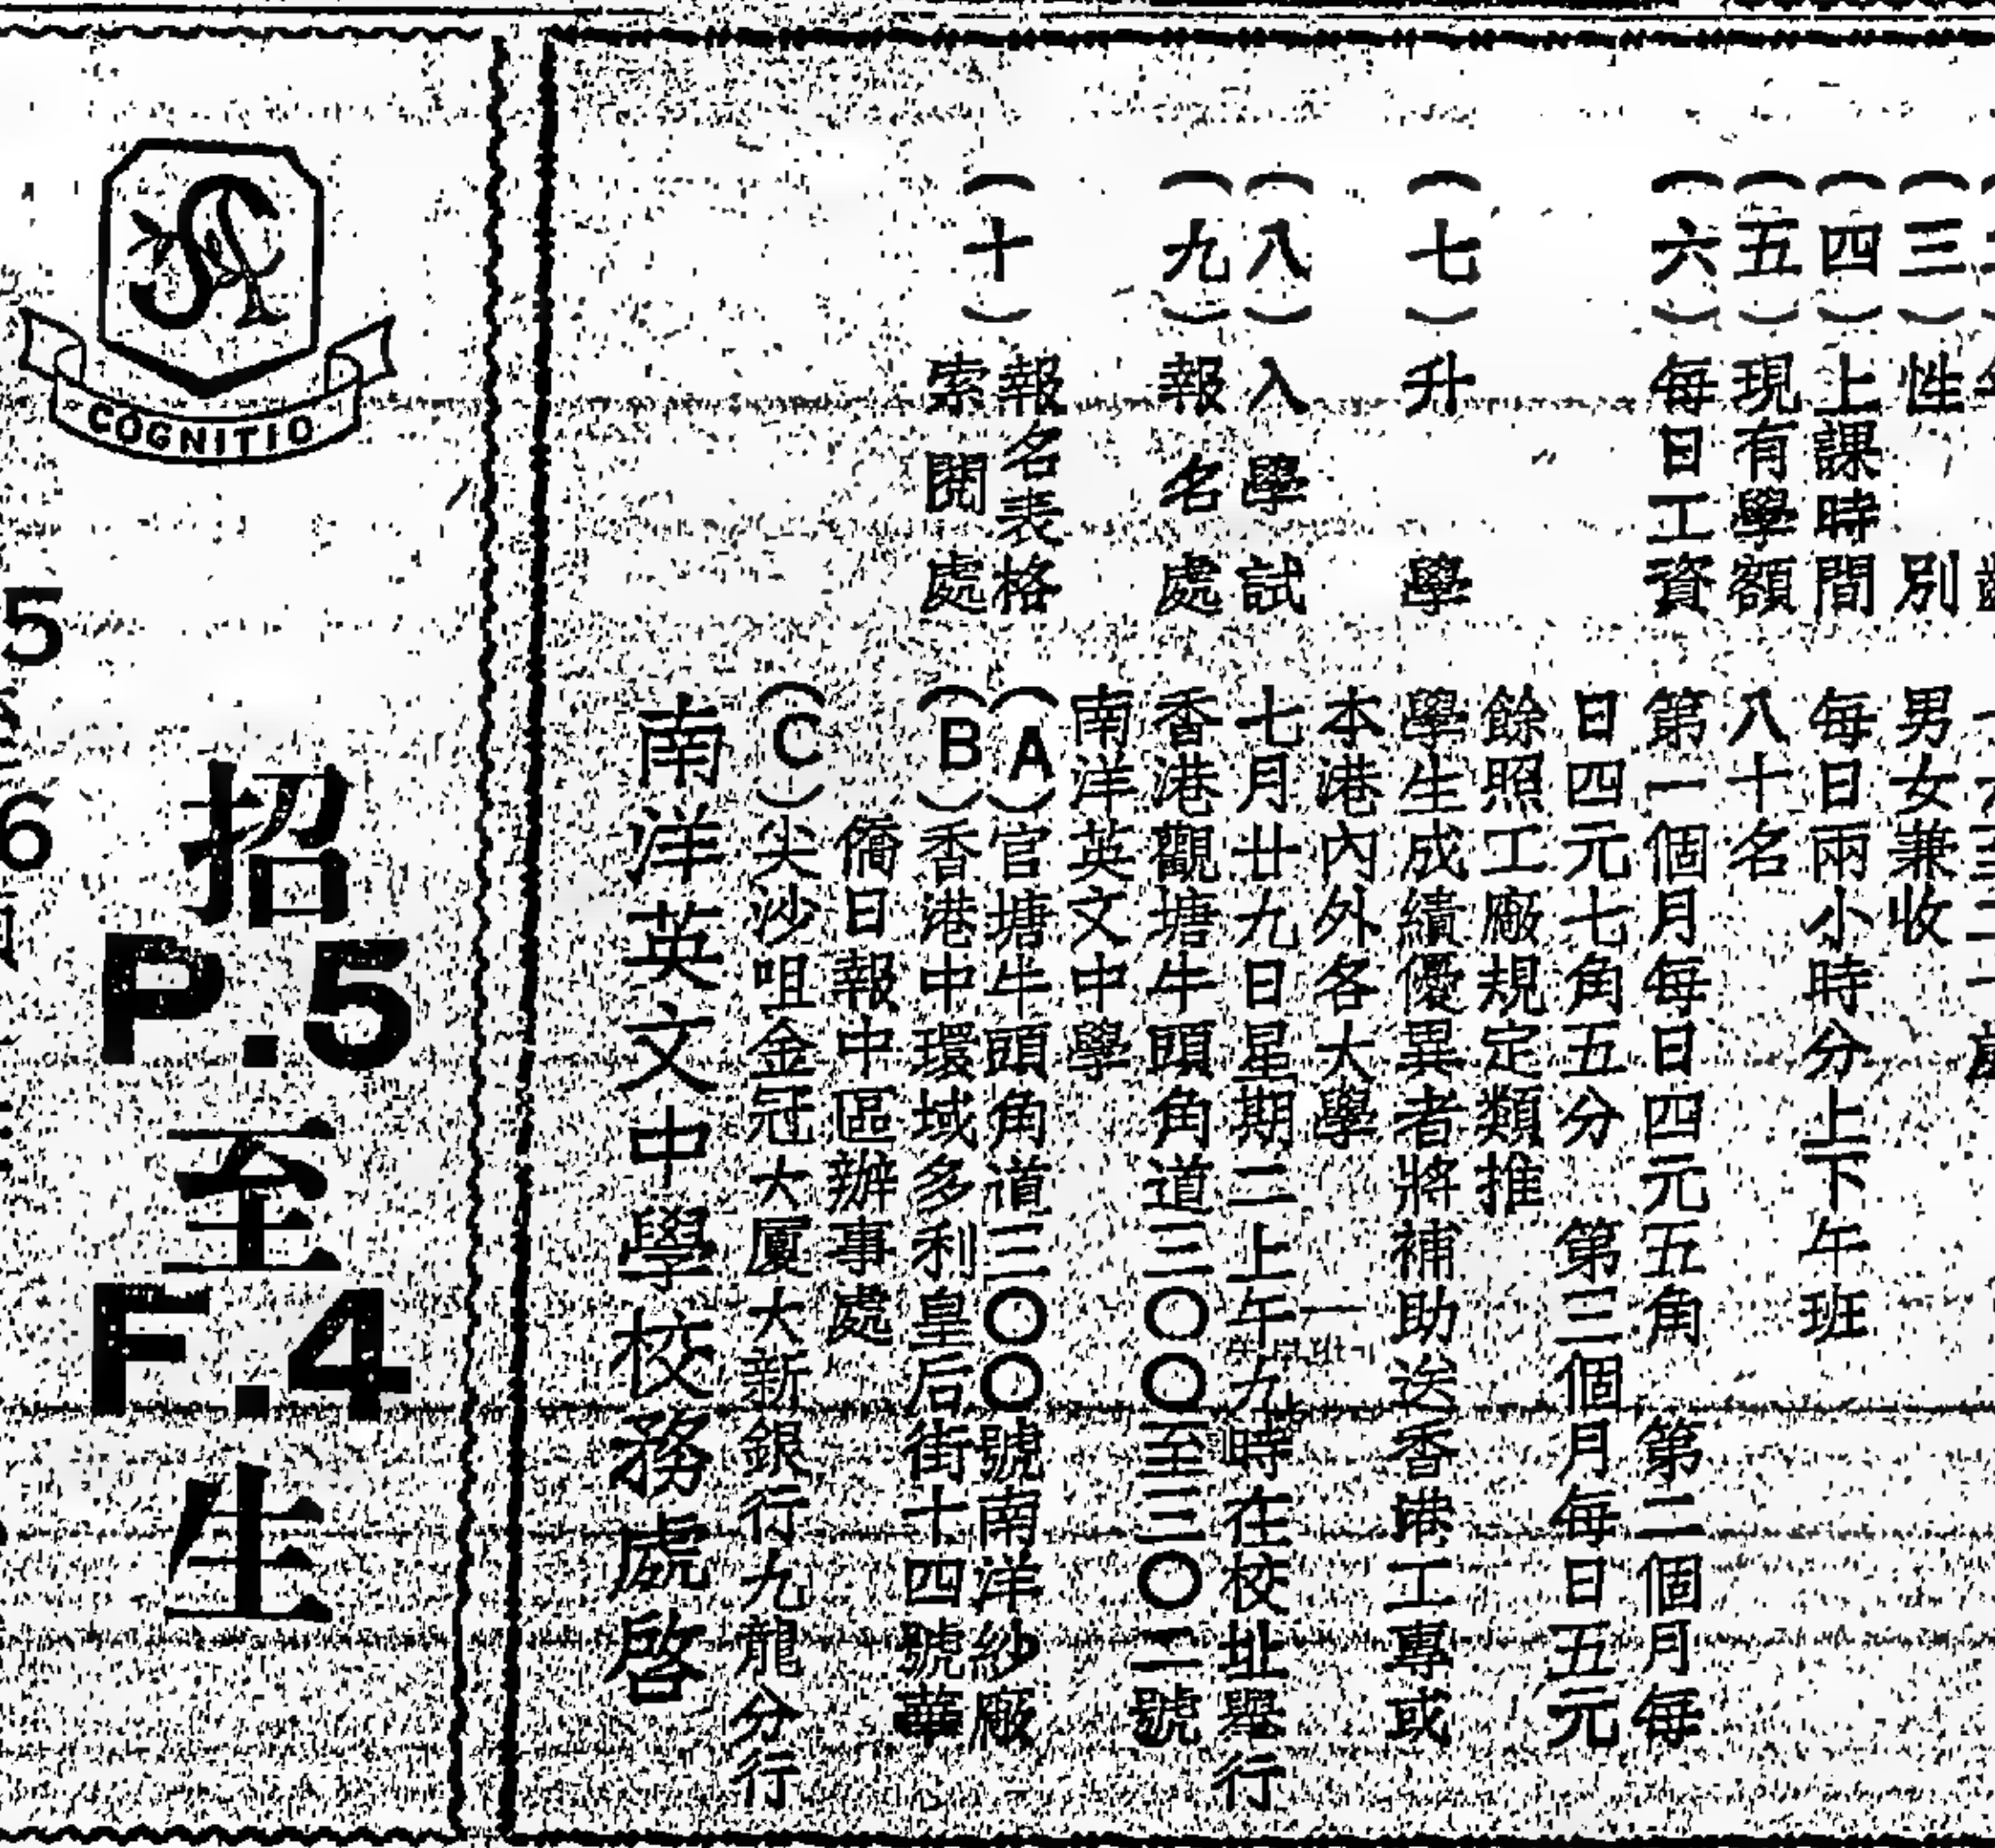 (三)性別 男女兼收
(四)上課時間 每日兩小時分上下午班
(五)現有學額 八十名
(六)每日工資 第一個月每日四元五角 第二個月每
日四元七角五分 第三個月每日五元
餘照工廠規定類推
(七)升學 學生成績優異者將補助送香港工專或
本港內外各大學
(八)入學試 七月廿九日星期二上午九時在校址舉行
(九)報名處 香港觀塘牛頭角道三〇〇至三〇二號
南洋英文中學
(十)報名表格
索閱處
(A)官塘牛頭角道三〇〇號南洋紗廠
(B)香港中環域多利皇后街十四號華
僑日報中區辦事處
(C)尖沙咀金冠大廈大新銀行九龍分行
南洋英文中學校務處啓
COGNITIO
招
P.5
至
F.4
生
5
6